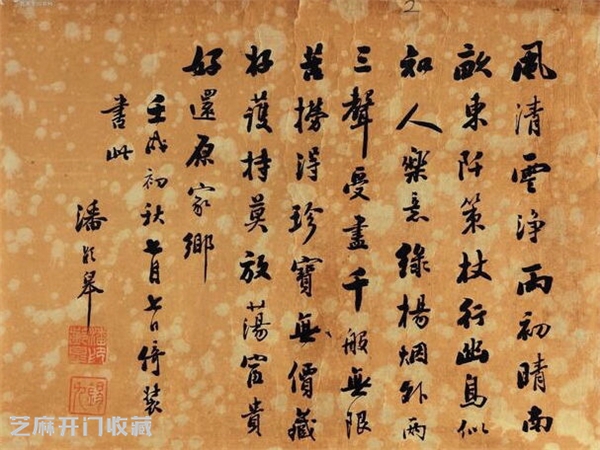 風清雲淨雨初晴南
畝東阡策杖行幽鳥似
知人樂意綠楊烟外兩
三聲受盡千般無限
苦撈得珍寶無價藏
好護持莫放蕩富貴
好還原家鄉
壬戌初秋七月七日倚裝
書此
潘齡皋
芝麻开门收藏
2